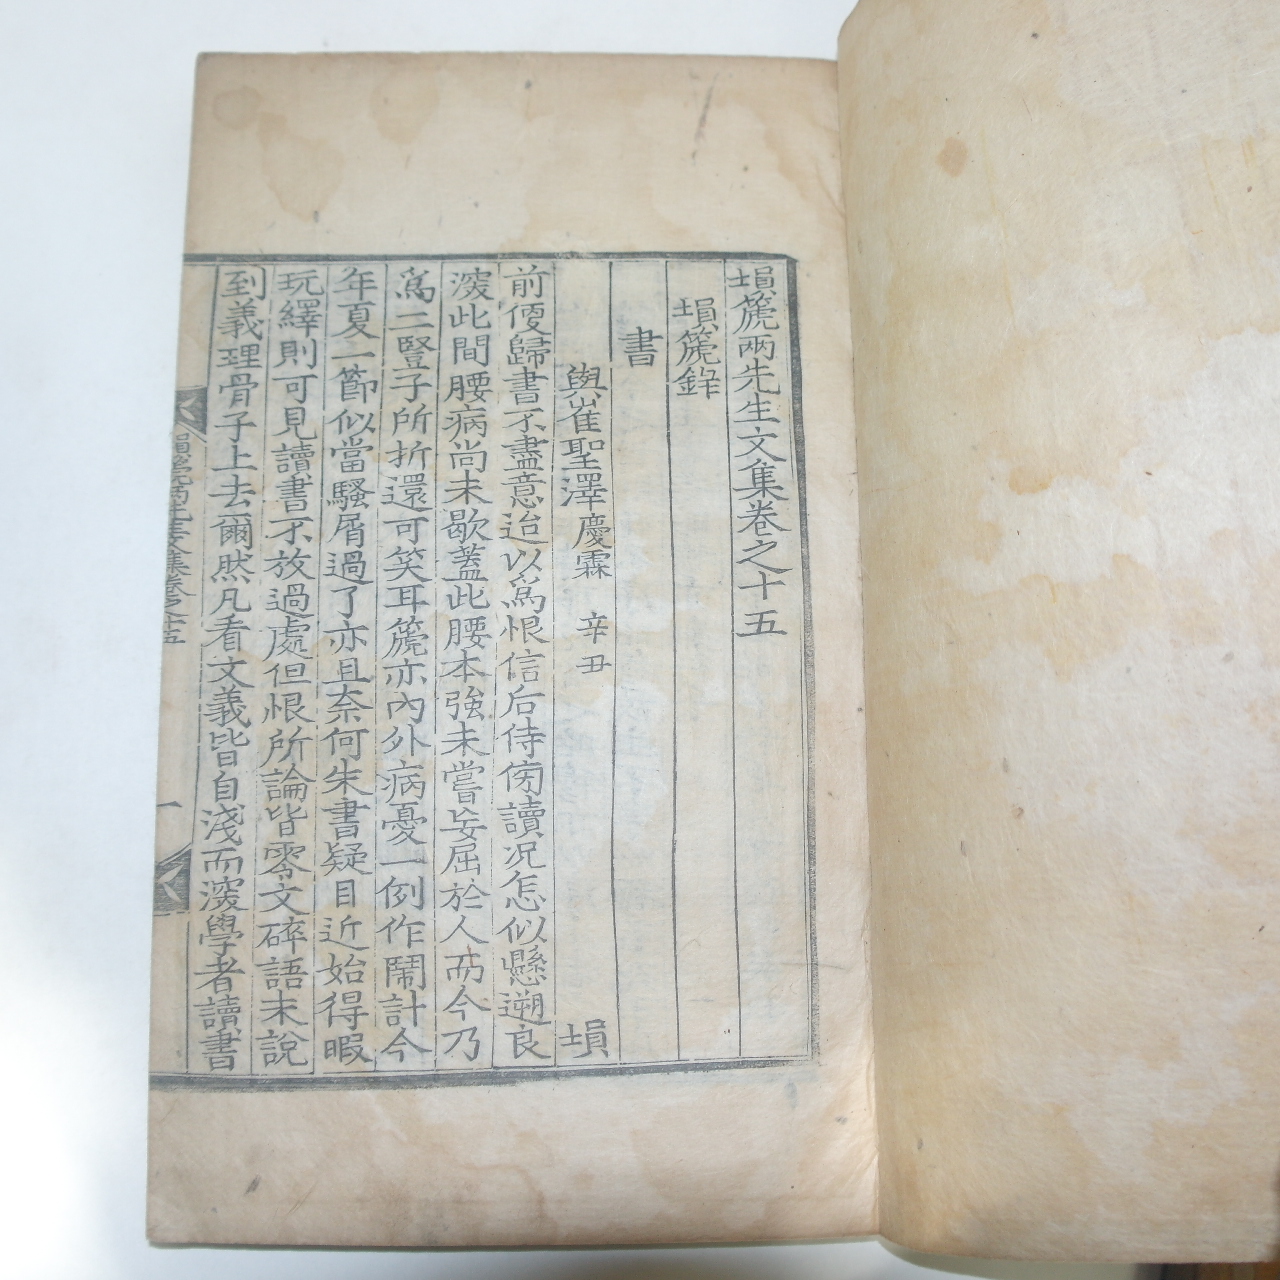 塤篪兩先生文集卷之十五
塤篪錄
書
與崔聖澤慶霖 辛丑 塤
前便歸書不盡意迨以爲恨信后侍傍讀况怎似懸遡良
深此間腰病尚未歇蓋此腰本強未嘗妄屈於人而今乃
爲二豎子所折還可笑耳篪亦內外病憂一例作鬧計今
年夏一節似當騷屑過了亦且柰何朱書疑目近始得暇
玩繹則可見讀書不放過處但恨所論皆零文碎語未說
到義理骨子上去爾然凡看文義皆自淺而深學者讀書
塤篪兩先生文集卷之十五
一